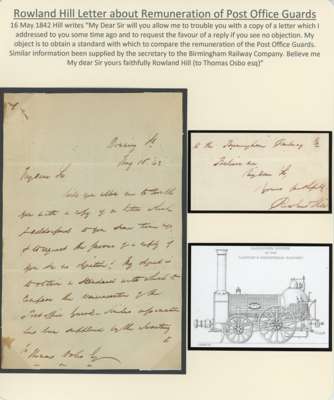 Rowland Hill Letter about Remuneration of Post Office Guards
16 May 1842 Hill writes "My Dear Sir will you allow me to trouble you with a copy of a letter which I
addressed to you some time ago and to request the favour of a reply if you see no objection. My
object is to obtain a standard with which to compare the remuneration of the Post Office Guards.
Similar information been supplied by the secretary to the Birmingham Railway Company. Believe me
My dear Sir yours faithfully Rowland Hill (to Thomas Osbo esq)"
My dear Sir
Will you allow me to trouble
you with a copy of a letter which
I addressed to you some time ago
and to request the favour of a reply if
you see no objection? My object is
to obtain a standard with which to
compare the remuneration of the
Post office guards. Similar information
has been supplied by the Secretary
to the Birmingham Railway
Believe me
My dear Sir
Yours faithfully
Rowland Hill
Thomas Osbo Esq